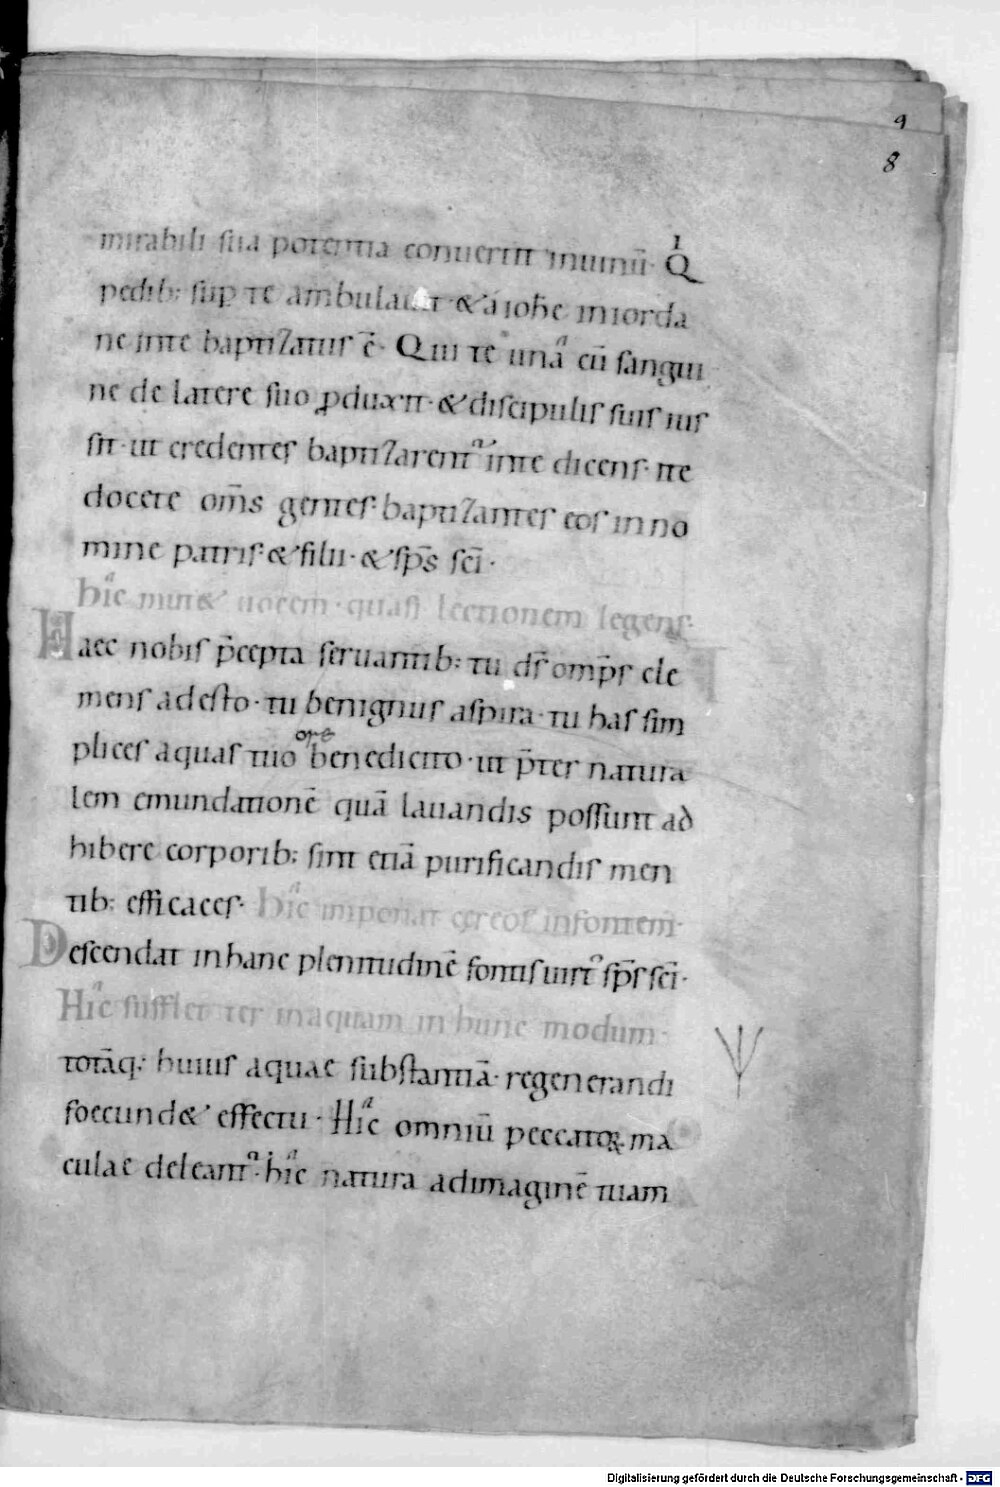 9
8
mirabili sua potentia conuertit inuinū· Qⁱ
pedib; sup te ambulauit·&áioħe iniorda
ne inte baptizatus ē· Qui te unā cū sangui
ne de latere suo ꝓduxit·&discipulis suis ius
sit·ut credentes baptizarent᷑ inte dicens·ite
docere om̄s gentes·baptizantes eos in no
mine patris·&filii·&sp̄s sc̄i·
hic mut& uocem·quasi lectionem legens·
Haec nobis p̄cepta seruantib; tu d̄s omp̄s cle
mens adesto·tu benignus aspira·tu has sim
plices aquas tuo ore benedicito·ut p̄ter natura
lem emundationē quā lauandis possunt ad
hibere corporib; sint etiā purificandis men
tib; efficaces· hic imponat cereos infontem·
Descendat inhanc plenitudinē fontis uirt᷑ sp̄s sc̄i·
Hic sufflet ter inaquam in hunc modum·
totāq; huius aquae substantiā·regenerandi
foecund& effectu· Hic omniū peccatoꝝ ma
culae deleant᷑·hic natura adimaginē tuam
Digitalisierung gefördert durch die Deutsche Forschungsgemeinschaft - DFG